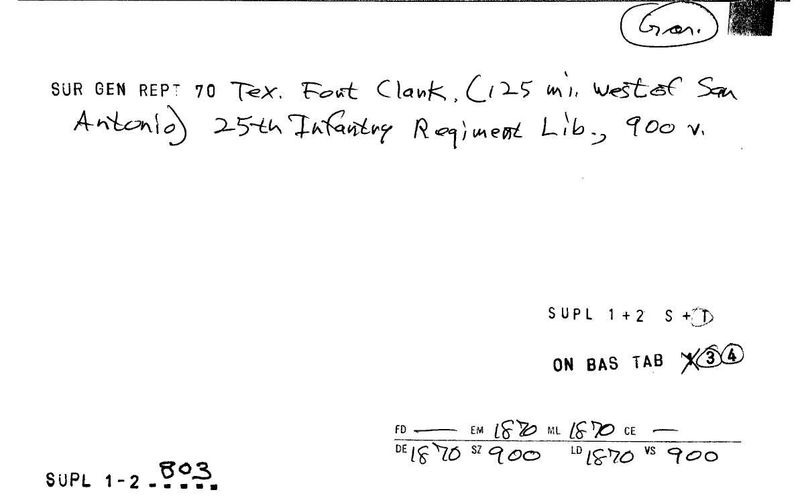 Gar.
SUR GEN REPT 70 Tex. Fort Clark, (125 mi. west of San
Antonio) 25th Infantry Regiment Lib., 900 v.
SUPL 1+2 S+D
ON BAS TAB 3 4
FD — EM 1870 ML 1870 CE —
DE 1870 SZ 900 LD 1870 VS 900
SUPL 1-2 803